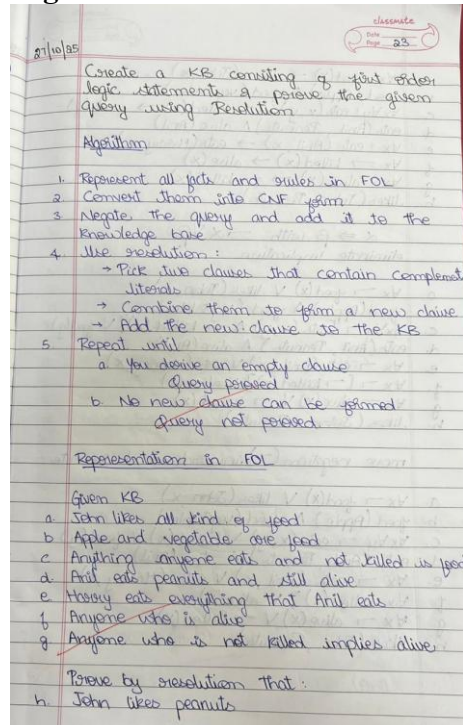 classmate
Date
Page 23
27/10/25
Create a KB consiting of first order
logic statements & prove the given
query using Resolution
Algorithm
1. Represent all facts and rules in FOL
2. Convert them into CNF form
3 Negate the query and add it to the
knowledge base
4 Use resolution :
→ Pick two clauses that contain complemet
literals
→ Combine them to form a new clause
→ Add the new clause to the KB
5. Repeat until
a. You derive an empty clause
Query proved
b. No new clause can be formed
Query not proved.
Representation in FOL
Given KB
a. John likes all kind of food
b Apple and vegetable are food
c Anything anyone eats and not killed is food
d. Anil eats peanuts and still alive
e Harry eats everything that Anil eats
f Anyone who is alive
g Anyone who is not killed implies alive
Prove by resolution that :
h. John likes peanuts